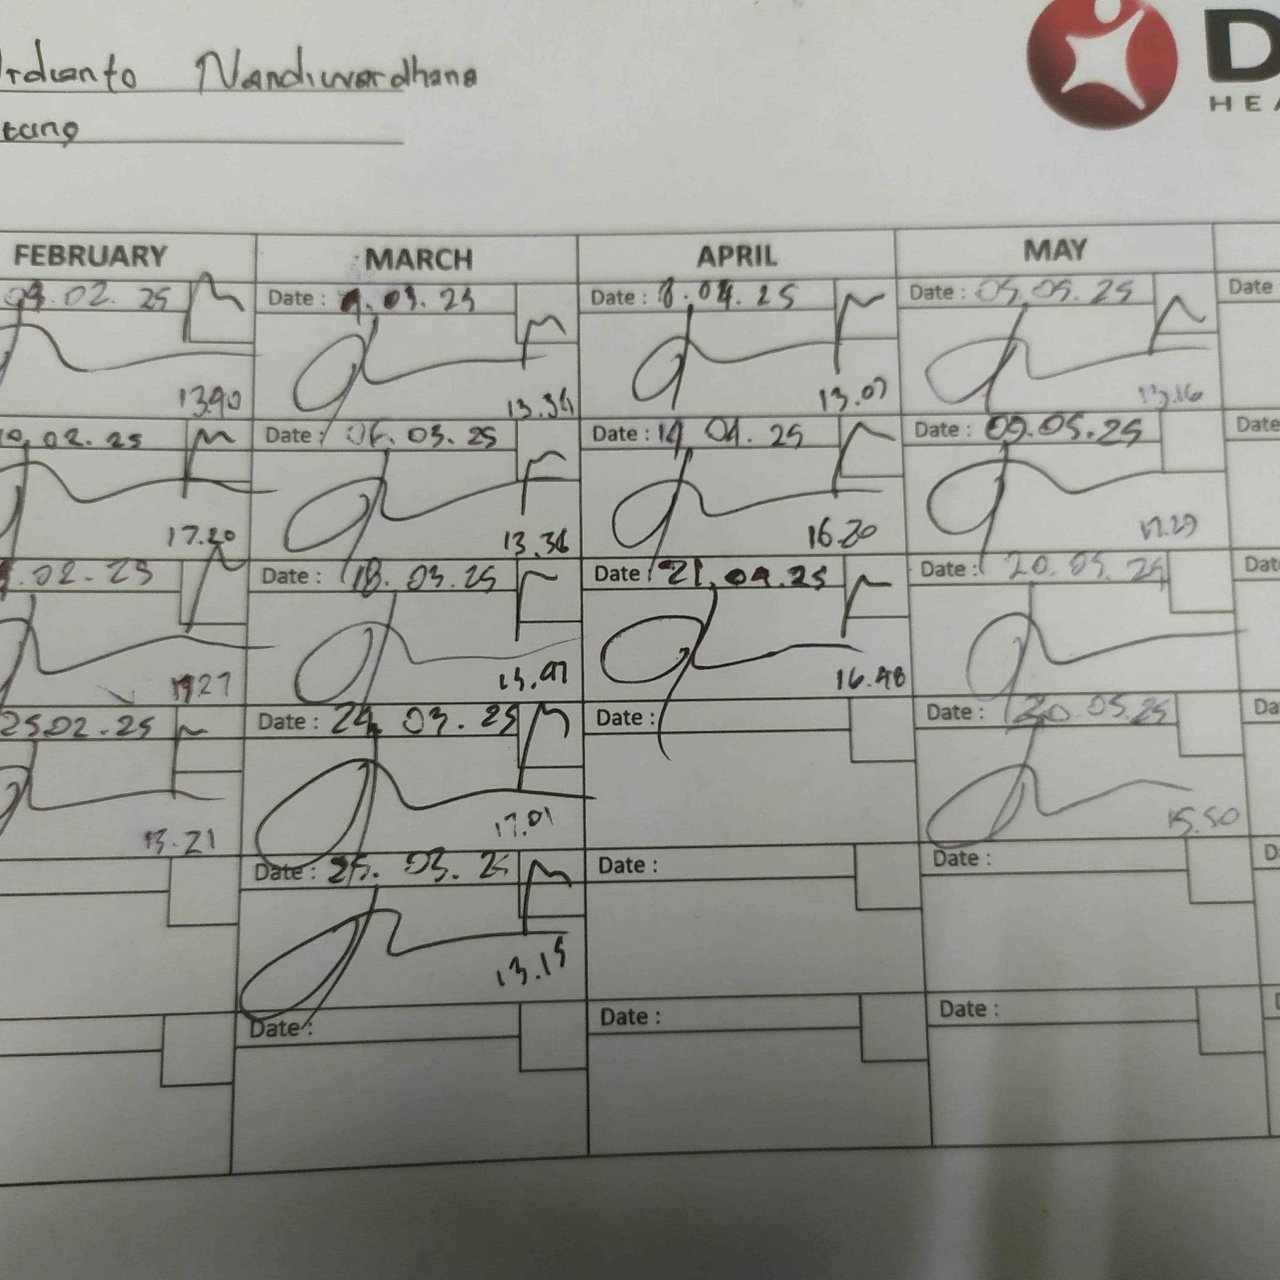 Nandiwardhana
D
HEA
FEBRUARY MARCH APRIL MAY
02. 25 Date : 03. 25 Date : 8. 04. 25 Date : 05. 05. 25 Date
13.34 13.07 13.16
02. 25 Date : 06. 03. 25 Date : 14 04. 25 Date : 09. 05. 25 Date
17.20 13.36 16.20 17.29
.02.25 Date : 18. 03. 25 Date : 21. 04. 25 Date : 20. 05. 25 Dat
16.48
25 02.25 Date : 24. 03. 25 Date : Date : 05. 25 Da
13.21 17.01 15.50
Date : 25. 03. 25 Date : Date : D
13.15
Date : Date : Date :